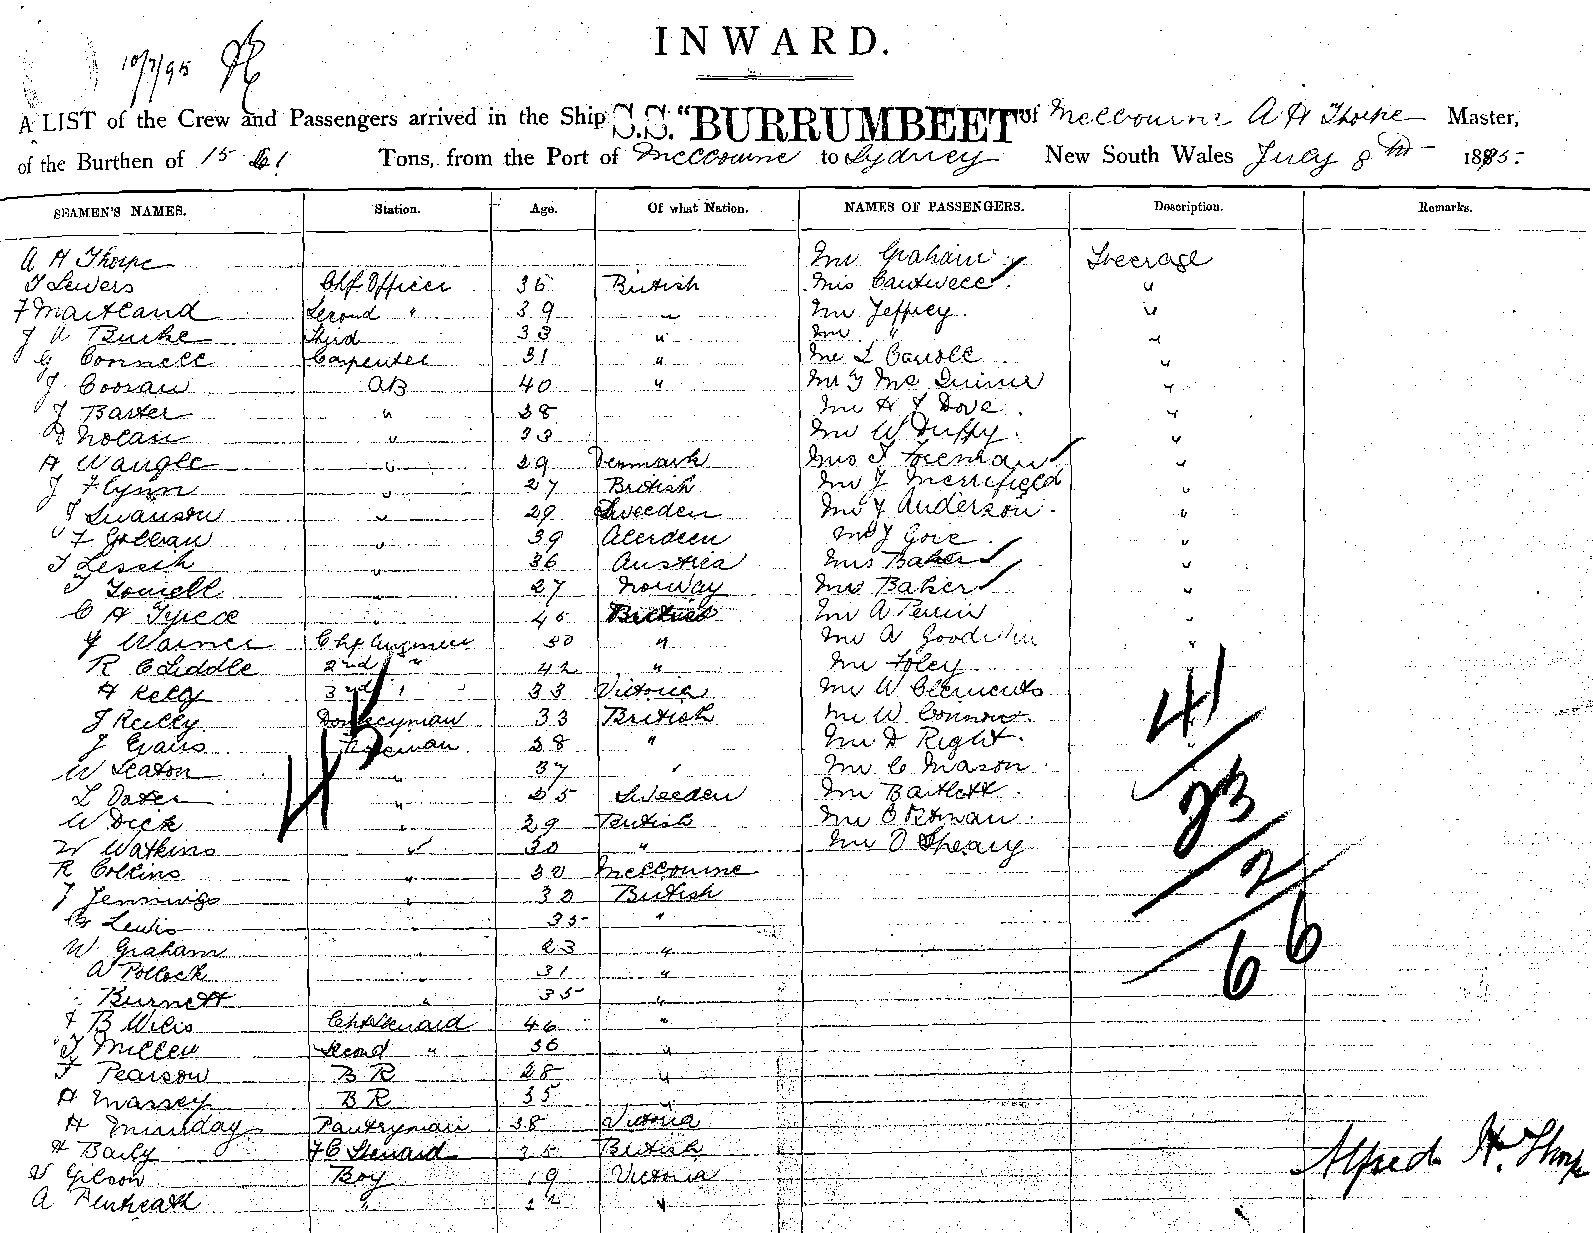 INWARD.
10/7/95
A LIST of the Crew and Passengers arrived in the Ship S.S. "BURRUMBEET" of Melbourne A H Thorpe Master,
of the Burthen of Tons, from the Port of Melbourne to Sydney New South Wales July 8th 1895.
SEAMEN'S NAMES. Station. Age. Of what Nation. NAMES OF PASSENGERS. Description. Remarks.
A H Thorpe Mr Graham Steerage
Sewers Chf Officer 36 British Mrs Cantwell "
F Maitland Second " 39 " Mr Jeffrey "
J A Burke Third 33 " Mr " "
G Connell Carpenter 31 " Mr L Carroll "
J AB 40 " Mr "
J Baxter " 38 Mr H J Dove "
D Nolan " 33 Mr W Duffy "
H Waugle " 29 Denmark Mrs J Foreman "
J Flynn " 27 British Mr J Merrifield "
J Swanson " 29 Sweeden Mr J Anderson "
F " 39 Aberdeen Mr J Gore "
" 36 Austria Mrs Baker "
" 27 Norway Mrs Baker "
C H " 45 British Mr A "
J Warner Chf Engineer 50 " Mr A "
R C Liddle 2nd " 42 " Mr Foley
H Kelly 3rd " 33 Victoria Mr W Clements
J Reilly Donkeyman 33 British Mr W Connor
J Evans Fireman 28 " Mr D Right
W Seaton " 37 " Mr C Mason
L " 25 Sweeden Mr Bartlett
W Dick " 29 British Mr
W Watkins " 30 " Mr O
R Collins " 30 Melbourne
J Jennings " 33 British
G Lewis " 35 "
W Graham " 23 "
A Pollock " 31 "
Burnett " 35 "
J B Chf Steward 46 "
J Miller Second " 36 "
F Pearson B R 28 "
H Massey B R 35 "
H Munday Pantryman 38 Victoria
H Baily F C Steward 35 British
W Gibson Boy 19 Victoria
A Penhreath " "
41
23
2
66
Alfred H. Thorpe